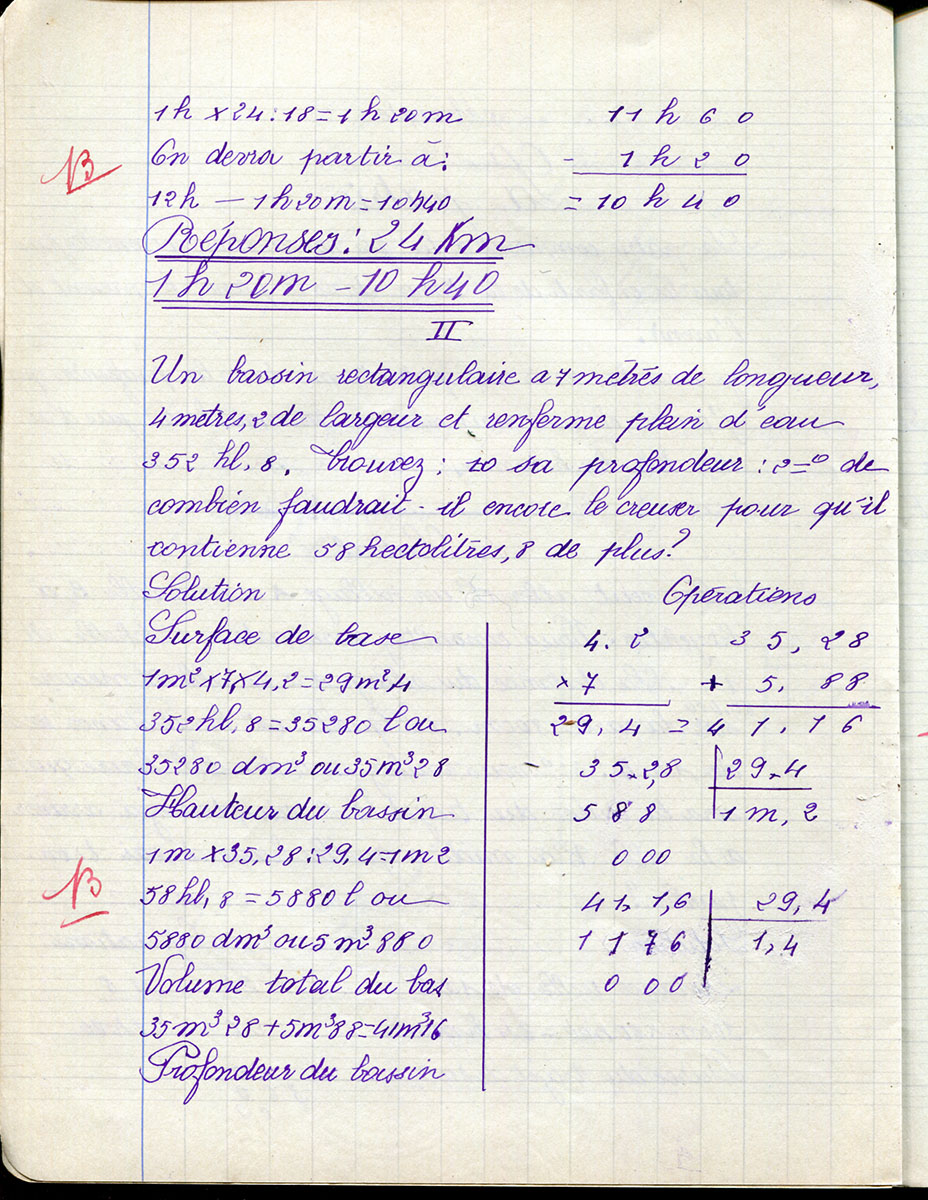 1h × 24 : 18 = 1h 20m
11 h 6 0
B
On devra partir à :
- 1 h 2 0
12h — 1h20m = 10h40
= 10 h 4 0
Réponses : 24 Km
1h 20m – 10 h 40
II
Un bassin rectangulaire a 7 mètrés de longueur,
4 mètres, 2 de largeur et renferme plein d'eau
352 hl, 8. Trouvez : 1o sa profondeur : 2=o de
combien faudrait-il encore le creuser pour qu'il
contienne 58 hectolitres, 8 de plus?
Solution
Opérations
Surface de base
4. 2
3 5, 28
1m² × 7 × 4,2 = 29m²4
× 7
+ 5, 88
352 hl, 8 = 35280 l ou
29, 4 = 4 1, 1 6
35280 dm³ ou 35m³28
35.2,8
29,4
Hauteur du bassin
5 8 8
1 m, 2
1m × 35,28 : 29,4 = 1m2
0 00
B
58 hl, 8 = 5880 l ou
41, 1,6
29,4
5880 dm³ ou 5m³880
1 1 7 6
1,4
Volume total du bas
0 00
35m³28 + 5m³88 = 41m³16
Profondeur du bassin